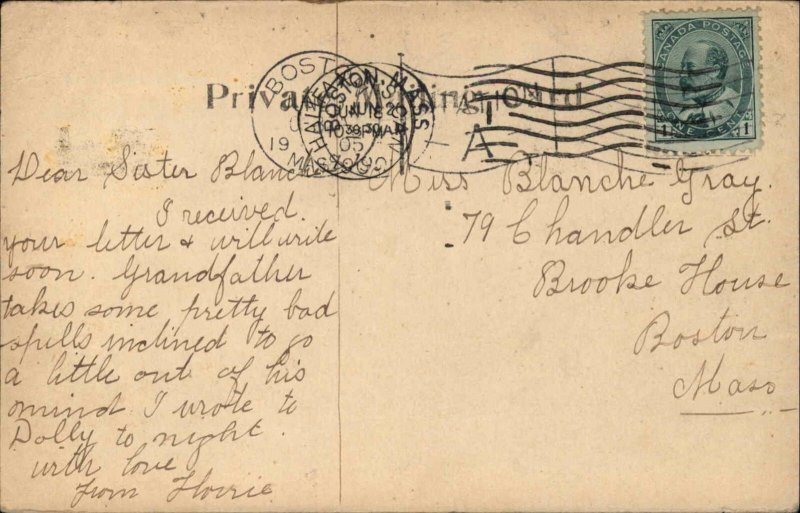 CANADA POSTAGE
1 ONE CENT 1
Private Mailing Card
BOSTON, MASS
HALIFAX
JUN 20
1905
A
Dear Sister Blanc
I received
your letter & will write
soon. Grandfather
takes some pretty bad
spells inclined to go
a little out of his
mind I wrote to
Dolly to night.
with love
from
Miss Blanche Gray.
79 Chandler St.
Brooke House
Boston
Mass